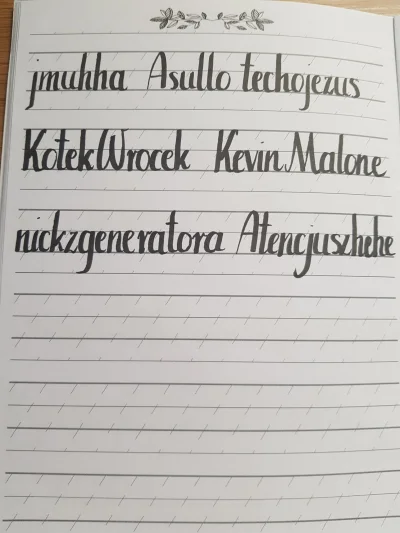 jmuhha Asullo techojezus
KotekWrocek Kevin Malone
nickzgeneratora Atencjuszhehe